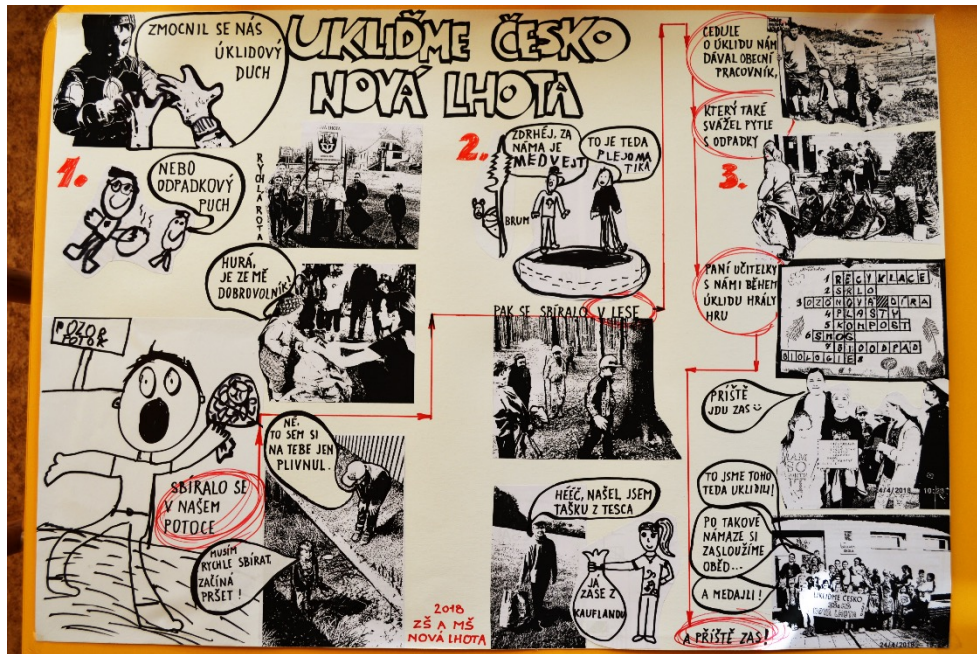 UKLIĎME ČESKO
NOVÁ LHOTA
ZMOCNIL SE NÁS
ÚKLIDOVÝ
DUCH
1.
NEBO
ODPADKOVÝ
PUCH
RYCHLÁ ROTA
HURÁ,
JE ZE MĚ
DOBROVOLNÍK!
POZOR
POTOK
SBÍRALO SE
V NAŠEM
POTOCE
NE,
TO SEM SI
NA TEBE JEN
PLIVNUL.
MUSÍM
RYCHLE SBÍRAT,
ZAČÍNÁ
PRŠET!
2.
ZDRHÉJ, ZA
NÁMA JE
MEDVEJT
TO JE TEDA
PLEJOMA
TIKA
BRUM
PAK SE SBÍRALO V LESE
HÉÉČ, NAŠEL JSEM
TAŠKU Z TESCA
JÁ
ZASE Z
KAUFLANDU
2018
ZŠ A MŠ
NOVÁ LHOTA
CEDULE
O ÚKLIDU NÁM
DÁVAL OBECNÍ
PRACOVNÍK,
KTERÝ TAKÉ
SVÁŽEL PYTLE
S ODPADKY
3.
PANÍ UČITELKY
S NÁMI BĚHEM
ÚKLIDU HRÁLY
HRU
1 RECYKLACE
2 SKLO
3 OZÓNOVÁ DÍRA
4 PLASTY
5 KOMPOST
6 SMOG
7 BIOODPAD
BIOLOGIE 8
PŘÍŠTĚ
JDU ZAS
24/4/2018
TO JSME TOHO
TEDA UKLIDILI!
PO TAKOVÉ
NAMAZE SI
ZASLOUŽÍME
OBĚD...
A MEDAJLI!
UKLIĎME ČESKO
NOVÁ LHOTA
24/4/2018
A PŘÍŠTĚ ZAS!